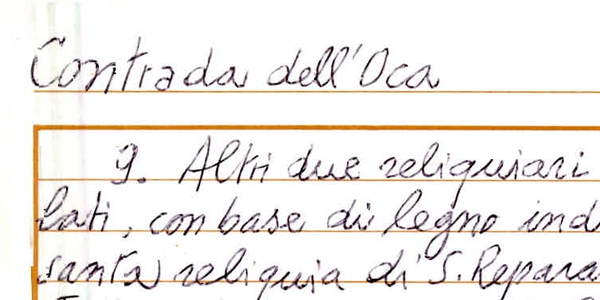 Contrada dell'Oca
9. Altri due reliquiari
lati, con base di legno ind
santa reliquia di S. Repara